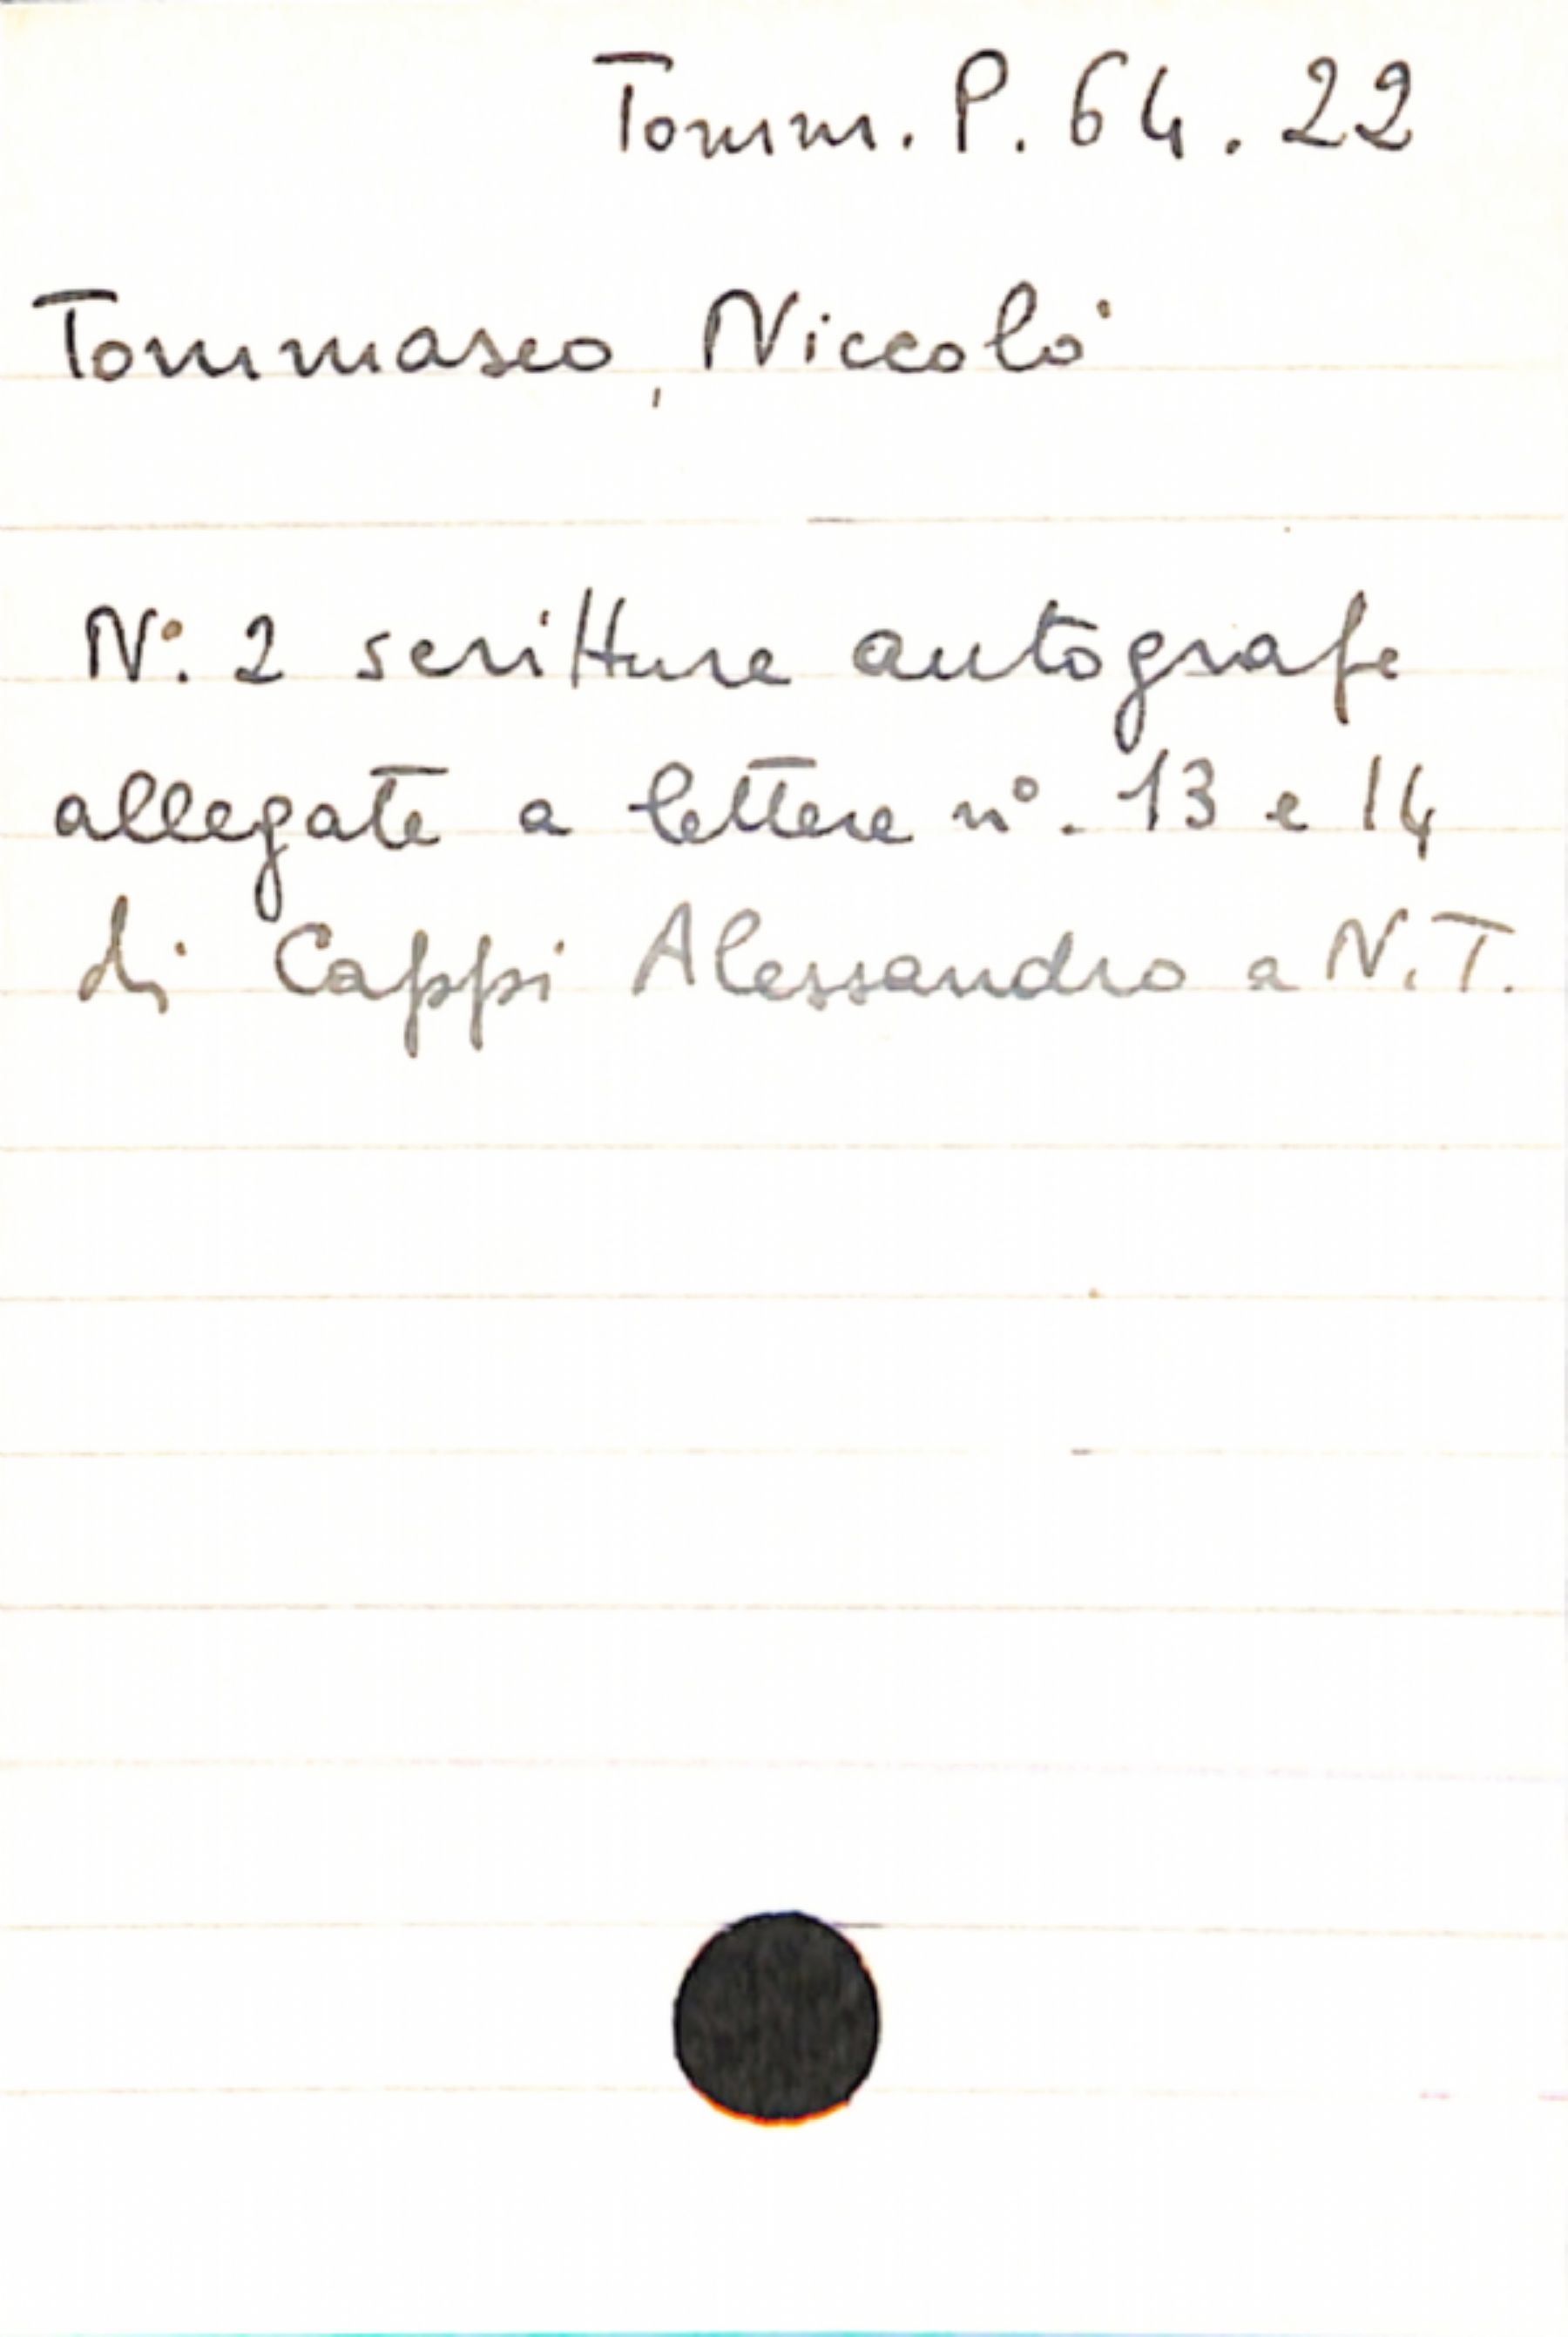 Tomm. P. 64. 22
Tommaseo, Niccolò
N°. 2 scritture autografe
allegate a lettere n°. 13 e 14
di Cappi Alessandro a N.T.